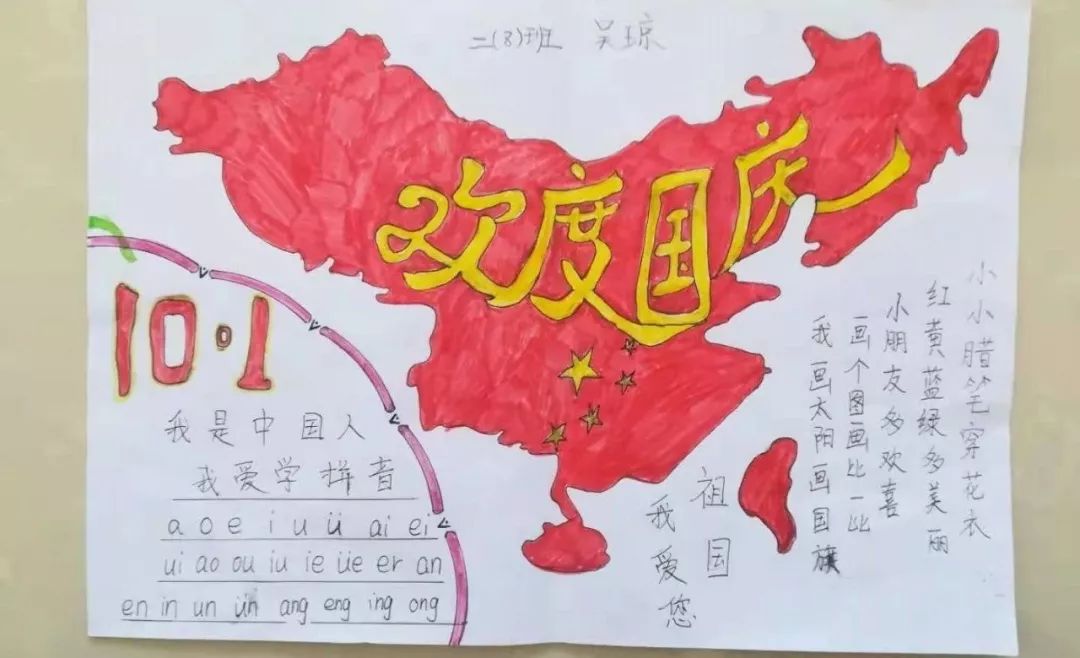 二(8)班 吴琼
欢度国庆
10·1
我是中国人
我爱学拼音
a o e i u ü ai ei
ui ao ou iu ie üe er an
en in un ün ang eng ing ong
祖国
我爱您
小小腊笔穿花衣
红黄蓝绿多美丽
小朋友多欢喜
画个图画比一比
我画太阳画国旗